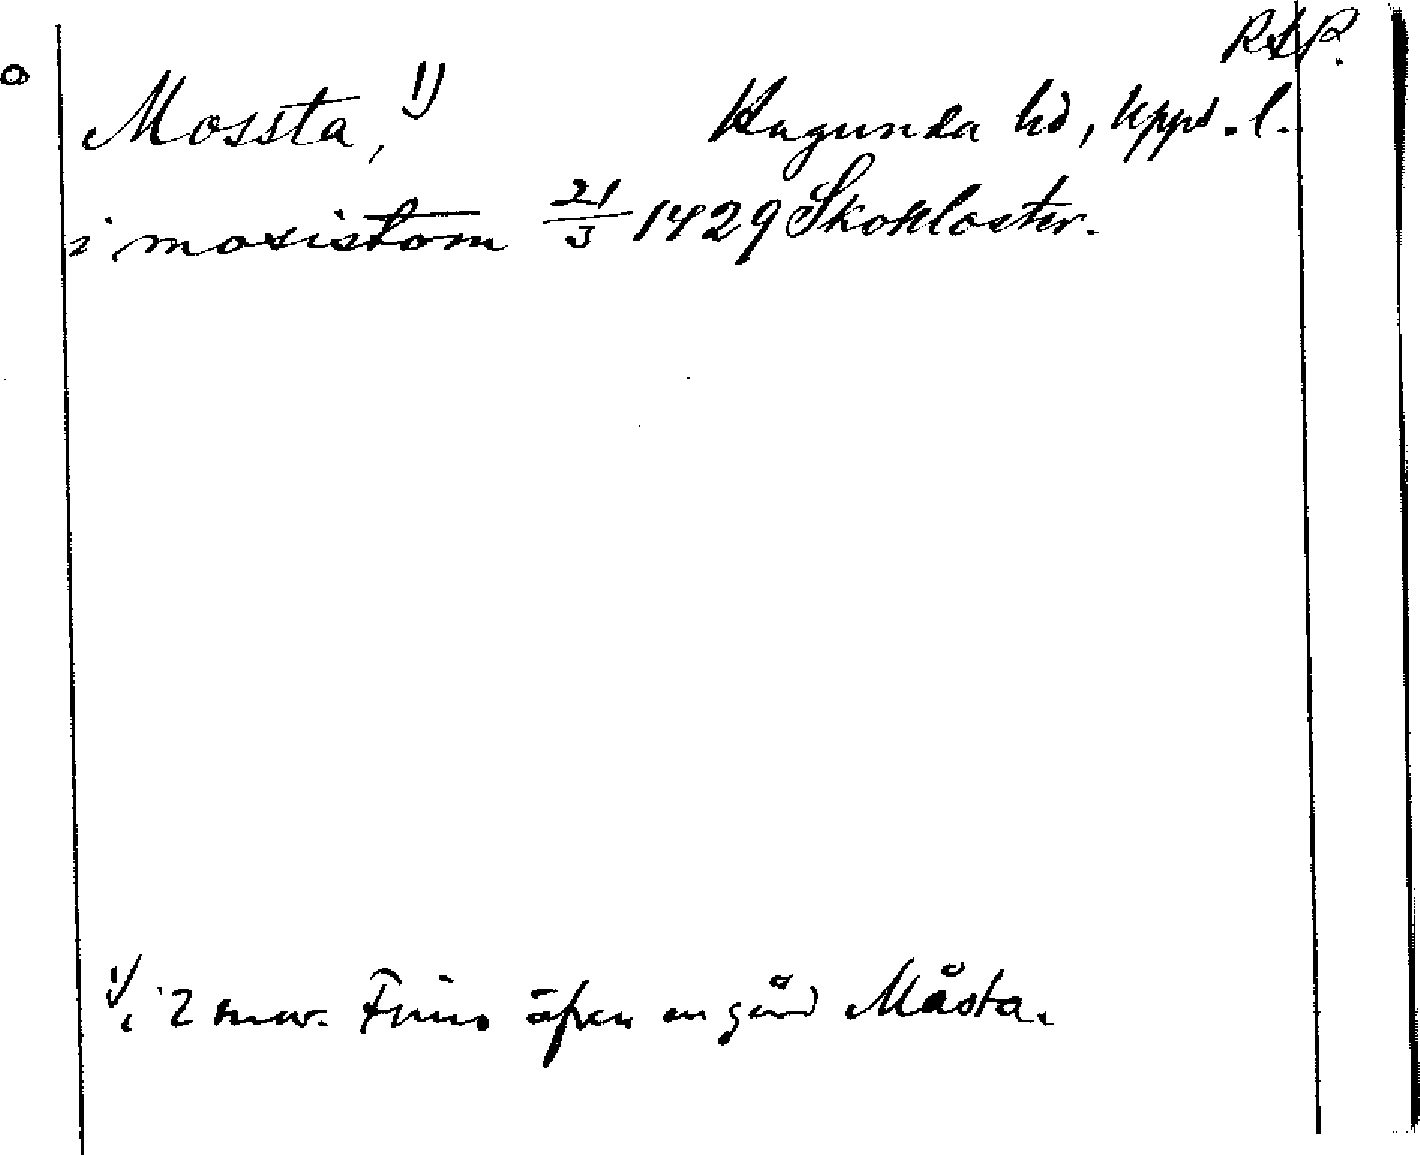 RAP.
Mossta, 1) Hagunda hd, Upps. l.
i mosistom 21/3 1429 Skokloster.
1) i 2 soc. Finns äfven en gård Måsta.